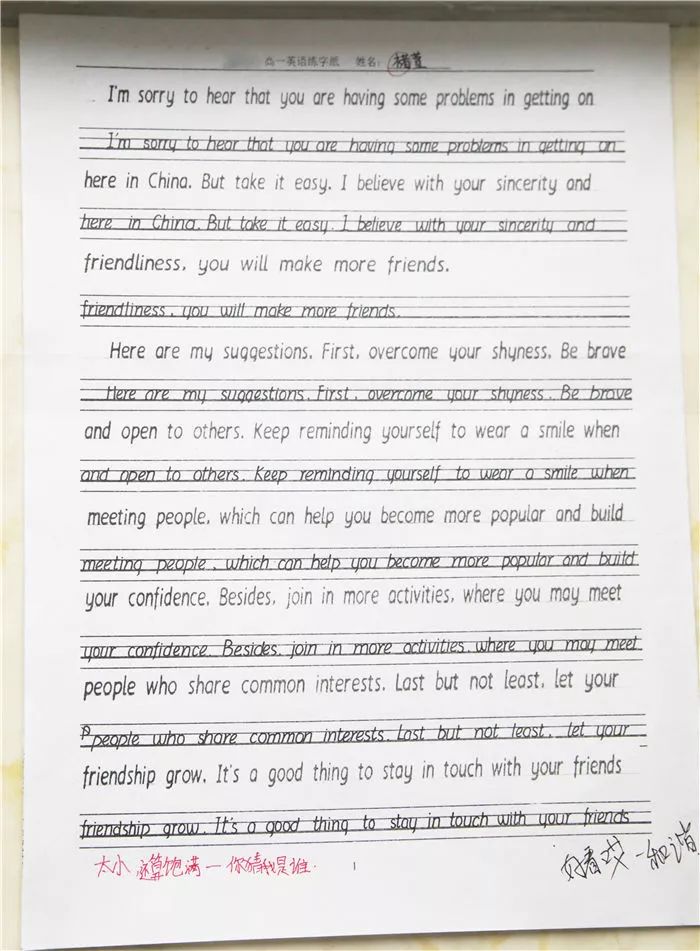 高一英语练字纸 姓名: 褚萱
I'm sorry to hear that you are having some problems in getting on
I'm sorry to hear that you are having some problems in getting on
here in China. But take it easy. I believe with your sincerity and
here in China. But take it easy. I believe with your sincerity and
friendliness, you will make more friends.
friendliness, you will make more friends.
Here are my suggestions. First, overcome your shyness. Be brave
Here are my suggestions. First, overcome your shyness. Be brave
and open to others. Keep reminding yourself to wear a smile when
and open to others. Keep reminding yourself to wear a smile when
meeting people, which can help you become more popular and build
meeting people, which can help you become more popular and build
your confidence. Besides, join in more activities, where you may meet
your confidence. Besides, join in more activities, where you may meet
people who share common interests. Last but not least, let your
P people who share common interests. Last but not least, let your
friendship grow. It's a good thing to stay in touch with your friends
friendship grow. It's a good thing to stay in touch with your friends
太小 这算饱满一 你猜我是谁.
1
好看 一和谐